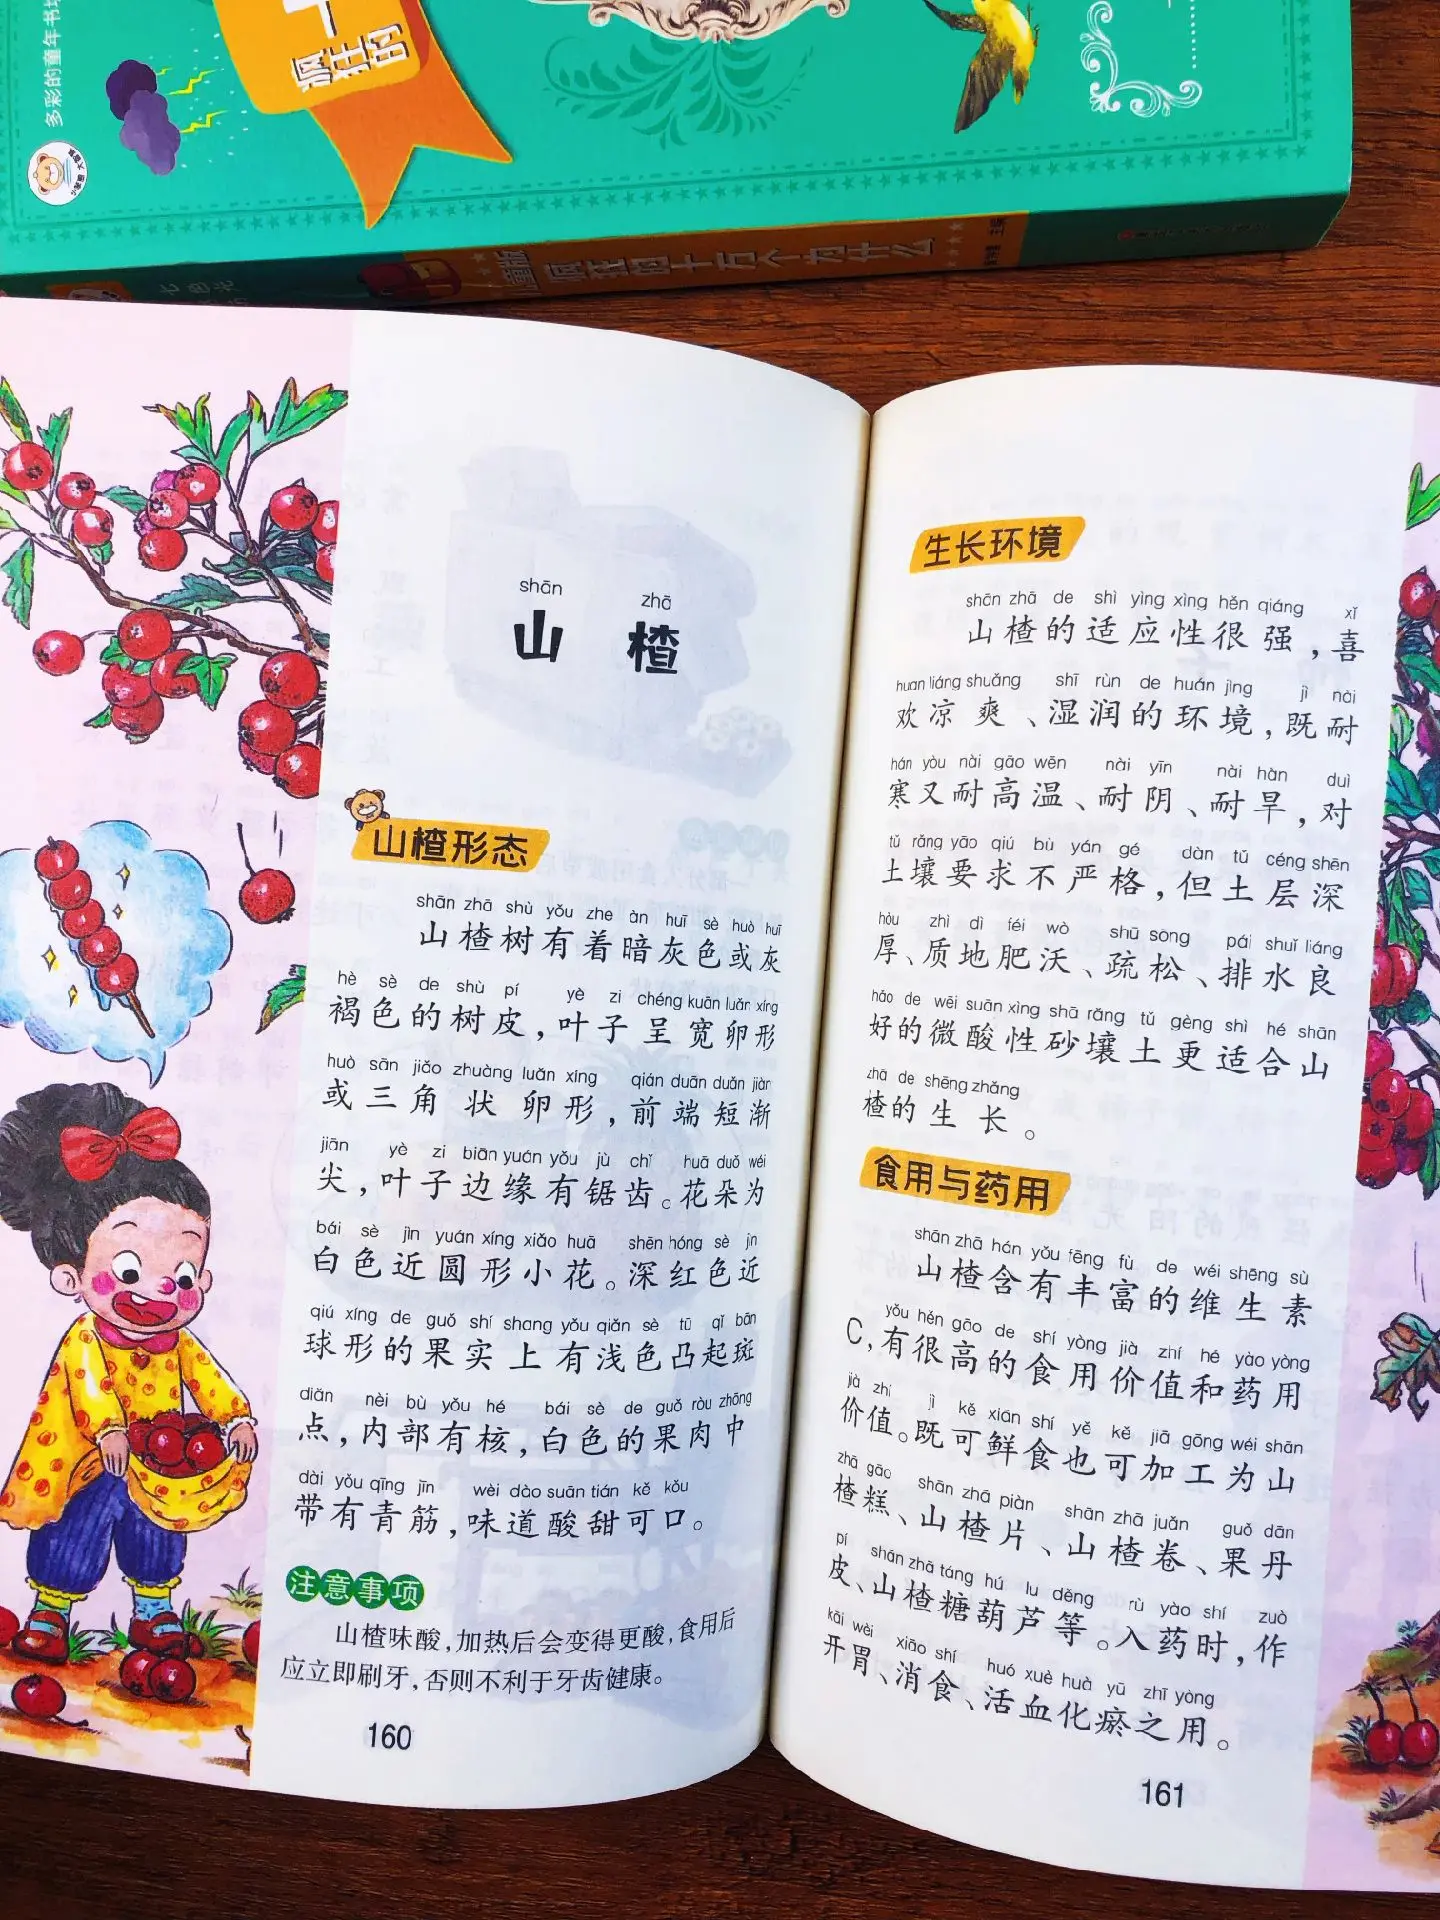 多彩的童年书坊
疯狂的十
疯狂的十万个为什么
shān zhā
山楂
山楂形态
shān zhā shù yǒu zhe àn huī sè huò huī
山楂树有着暗灰色或灰
hè sè de shù pí yè zi chéng kuān luǎn xíng
褐色的树皮，叶子呈宽卵形
huò sān jiǎo zhuàng luǎn xíng qián duān duǎn jiàn
或三角状卵形，前端短渐
jiān yè zi biān yuán yǒu jù chǐ huā duǒ wéi
尖，叶子边缘有锯齿。花朵为
bái sè jìn yuán xíng xiǎo huā shēn hóng sè jìn
白色近圆形小花。深红色近
qiú xíng de guǒ shí shang yǒu qiǎn sè tū qǐ bān
球形的果实上有浅色凸起斑
diǎn nèi bù yǒu hé bái sè de guǒ ròu zhōng
点，内部有核，白色的果肉中
dài yǒu qīng jīn wèi dào suān tián kě kǒu
带有青筋，味道酸甜可口。
注意事项
山楂味酸，加热后会变得更酸，食用后
应立即刷牙，否则不利于牙齿健康。
160
生长环境
shān zhā de shì yìng xìng hěn qiáng xǐ
山楂的适应性很强，喜
huan liáng shuǎng shī rùn de huán jìng jì nài
欢凉爽、湿润的环境，既耐
hán yòu nài gāo wēn nài yīn nài hàn duì
寒又耐高温、耐阴、耐旱，对
tǔ rǎng yāo qiú bù yán gé dàn tǔ céng shēn
土壤要求不严格，但土层深
hòu zhì dì féi wò shū sōng pái shuǐ liáng
厚、质地肥沃、疏松、排水良
hǎo de wēi suān xìng shā rǎng tǔ gèng shì hé shān
好的微酸性砂壤土更适合山
zhā de shēng zhǎng
楂的生长。
食用与药用
shān zhā hán yǒu fēng fù de wéi shēng sù
山楂含有丰富的维生素
yǒu hěn gāo de shí yòng jià zhí hé yào yòng
C，有很高的食用价值和药用
jià zhí jì kě xiān shí yě kě jiā gōng wéi shān
价值。既可鲜食也可加工为山
zhā gāo shān zhā piàn shān zhā juǎn guǒ dān
楂糕、山楂片、山楂卷、果丹
pí shān zhā táng hú lu děng rù yào shí zuò
皮、山楂糖葫芦等。入药时，作
kāi wèi xiāo shí huó xuè huà yū zhī yòng
开胃、消食、活血化瘀之用。
161